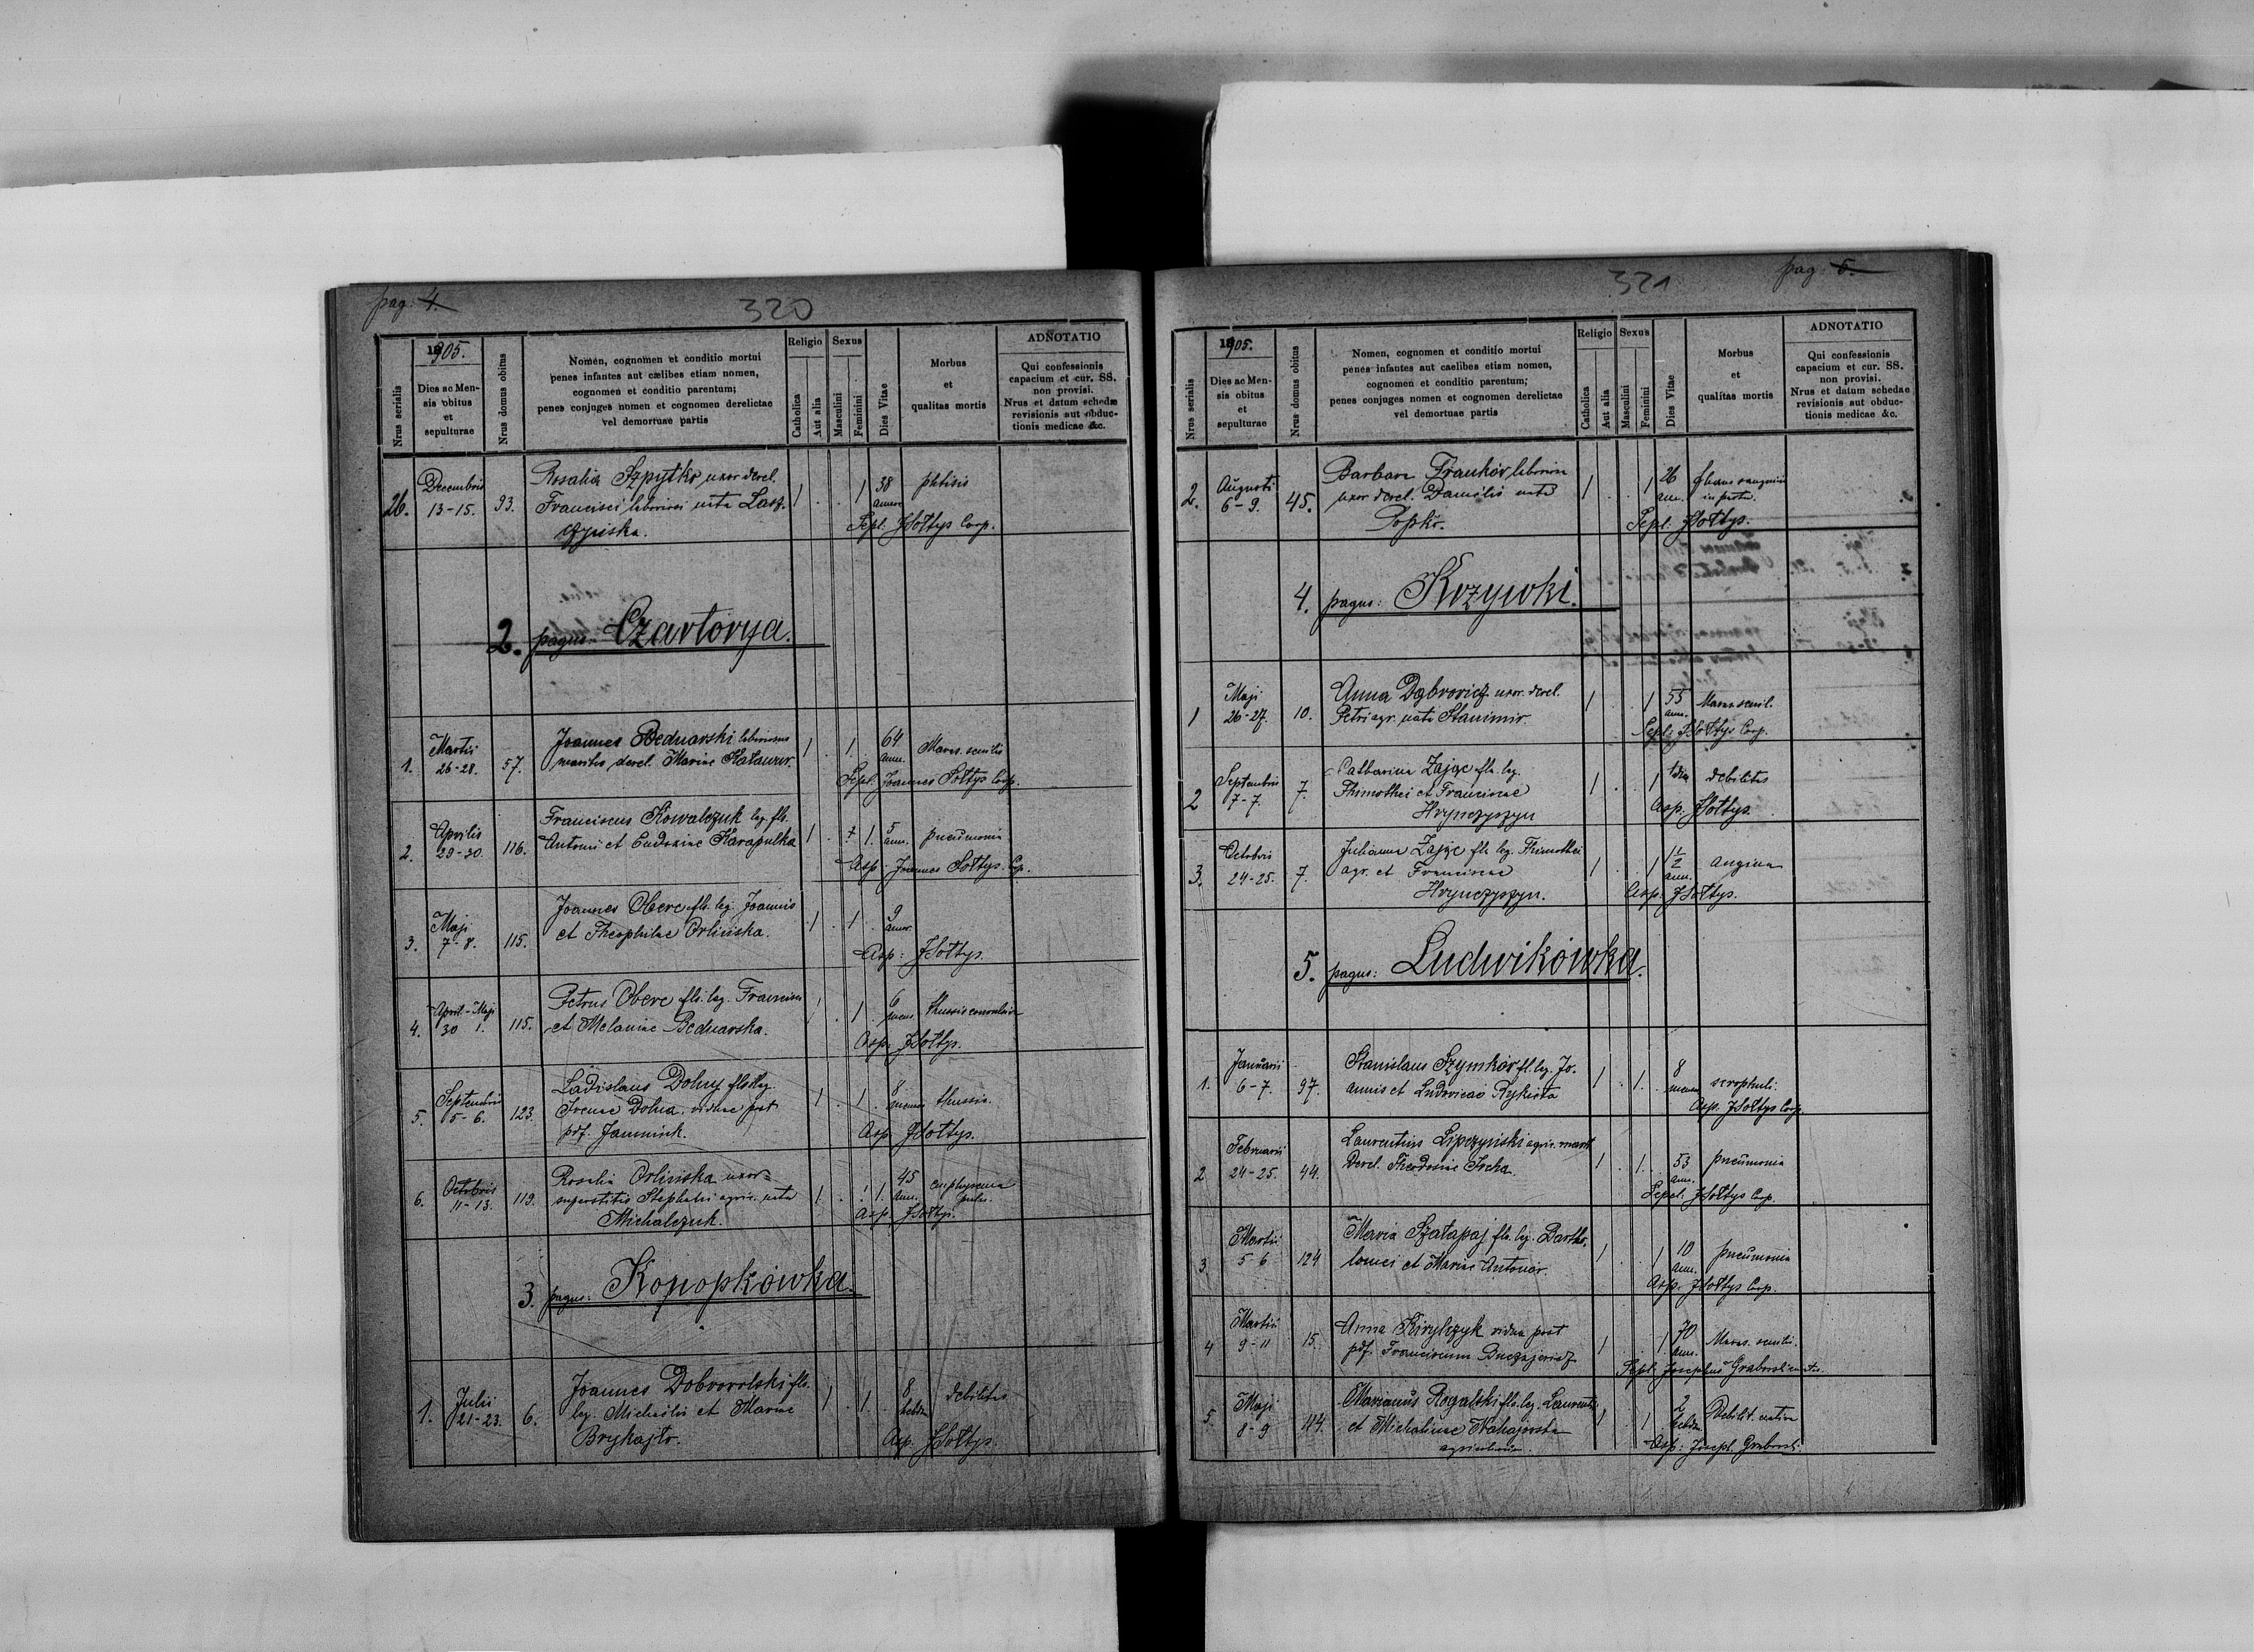 pag: 4.
320
1905.
Nrus serialis
Dies ac Men-
sis obitus
et
sepulturae
Nrus domus obitus
Nomen, cognomen et conditio mortui
penes infantes aut cælibes etiam nomen,
cognomen et conditio parentum;
penes conjuges nomen et cognomen derelictae
vel demortuae partis
Religio
Catholica
Aut alia
Sexus
Masculini
Feminini
Dies Vitae
Morbus
et
qualitas mortis
ADNOTATIO
Qui confessionis
capacium et cur. SS.
non provisi.
Nrus et datum schedæ
revisionis aut obduc-
tionis medicae &c.
26. Decembris 13-15. 93.
Rosalia Szpytko uxor derel.
Francisci laboriosi nata Lasz-
czyńska.
1 . . 1 38 annor. phtisis
Sepl. JSołtys Coop.
2. pagus: Czartorya.
1. Martii 26-28. 57.
Joannes Bednarski laboriosus
maritus derel. Mariae Hałauur.
1 . 1 . 64 ann. Maras. senilis
Sepl. Joannes Sołtys Coop.
2. Aprilis 29-30. 116.
Franciscus Kowalczuk leg. fls.
Antonii et Eudoxiae Karapulka
1 . 1. 5 ann. pneumonia
Asp: Joannes Sołtys Cop.
3. Maji 7-8. 115.
Joannes Oberc fls. leg. Joannis
et Theophilae Orlińska.
1 . 1 . 9 annor.
Asp: JSołtys.
4. April-Maji 30 1. 115.
Petrus Oberc fls. leg. Francisci
et Melaniae Bednarska.
1 . 1 . 6 mens. thussis
Asp: JSołtys.
5. Septembris 5-6. 123.
Ladislaus Dolny fls. illeg.
Irenae Dolna viduae post
pdf. Jaminink.
1 . 1 . 8 menses thussis.
Asp: JSołtys.
6. Octobris 11-13. 119.
Rosalia Orlińska uxor
superstitis Stephani agric. nata
Michalczuk.
1. . . 1. 45 ann. emphysema pulm.
Asp. JSołtys.
3. pagus: Konopkówka.
1. Julii 21-23. 6.
Joannes Dobrowolski fls.
leg. Michaëlis et Mariae
Brykajto.
1 . 1. . 8 hebdm. debilitas
Asp. JSołtys.
pag: 5.
321
1905.
Nrus serialis
Dies ac Men-
sis obitus
et
sepulturae
Nrus domus obitus
Nomen, cognomen et conditio mortui
penes infantes aut caelibes etiam nomen,
cognomen et conditio parentum;
penes conjuges nomen et cognomen derelictae
vel demortuae partis
Religio
Catholica
Aut alia
Sexus
Masculini
Feminini
Dies Vitae
Morbus
et
qualitas mortis
ADNOTATIO
Qui confessionis
capacium et cur. SS.
non provisi.
Nrus et datum schedae
revisionis aut obduc-
tionis medicae &c.
2. Augusti 6-9. 45.
Barbara Frankóv laboriosa
uxor derel. Danielis nata
Popko.
1 . . 1 26 ann. fluxus sanguinis in partu.
Sepl: JSołtys.
4. pagus: Krzywki.
1 Maji 26-27. 10.
Anna Dąbrovicz uxor. derel.
Petri agr. nata Stanimir.
1 . . 1 55 ann. Maras. senil.
Sepl: JSołtys Coop.
2 Septembris 7-7. 7.
Catharina Zając fla. leg.
Thimothei et Franciscae
Hrynczyszyn
1 . . 1 1 dies debilitas
Asp. JSołtys.
3. Octobris 24-25. 7.
Julianna Zając fla. leg. Thimothei
agr. et Franciscae
Hrynczyszyn.
1 . . 1 1½ ann. angina
Asp: JSołtys.
5. pagus: Ludwikówka.
1. Januarii 6-7. 97.
Stanislaus Szymków fl. leg. Jo-
annis et Ludovicae Rykista
1 . 1. . 8 menses scrophuli:
Asp. JSołtys Coop.
2 Februarii 24-25. 44.
Laurentius Lipczyński agric. marit.
derel. Theodosiae Socha.
1 . 1. . 53 ann. pneumonia
Sepel: JSołtys Coop.
3 Martii 5-6 124
Maria Szałapaj fla. leg. Bartho-
lomei et Mariae Antonóv.
1 . . 1 10 ann. pneumonia
Asp: JSołtys Coop.
4 Martii 9-11 15.
Anna Kirylczyk vidua post
pdf. Franciscum Buczajewicz
1 . . 1. 70 ann. Maras. senilis.
Sepl: Josephus Grabowski
5. Maji 8-9 114.
Marianus Rogalski fls. leg. Laurentii
et Michalinae Nahajovska
agricolarum.
1 . 1 . 2 hebdm. Debilit. nativa
Asp: Joseph. Grabowski